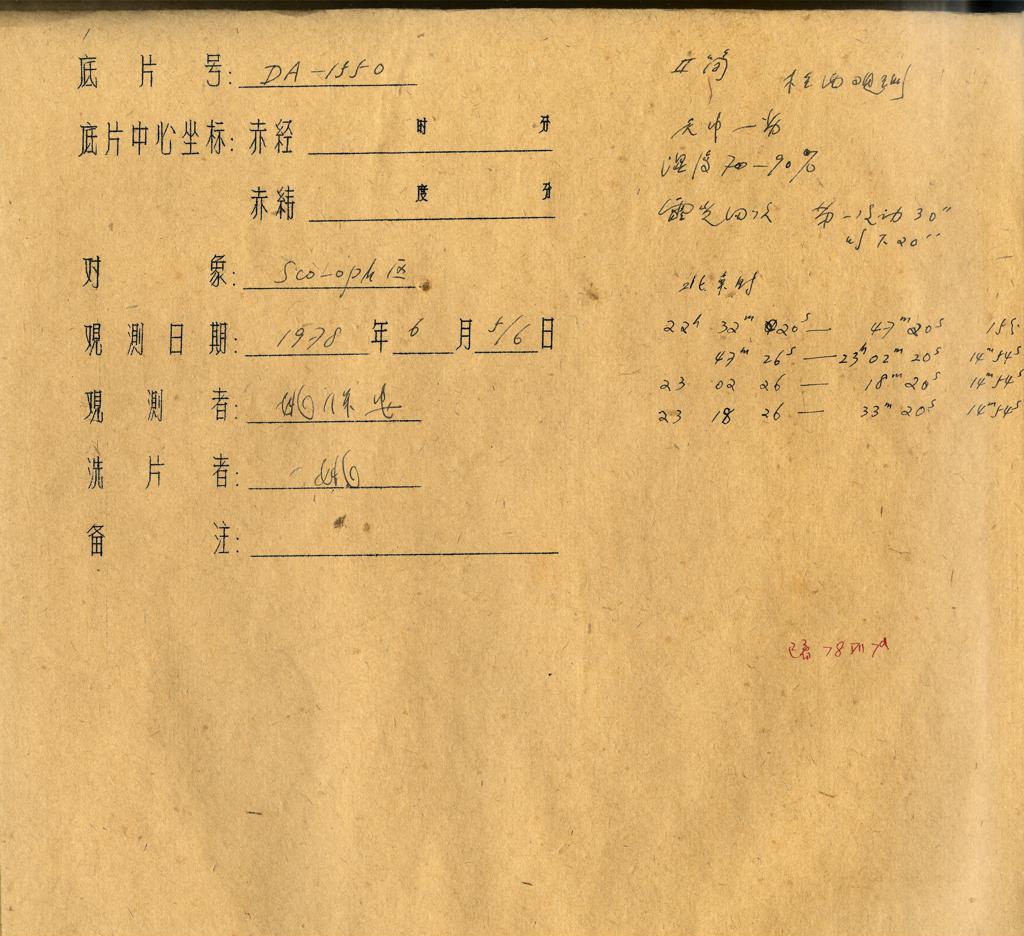 底片号: DA-1550
底片中心坐标: 赤经 时 分
赤纬 度 分
对象: Sco-oph 区
观测日期: 1978 年 6 月 5/6 日
观测者: 姚保安
洗片者: 姚
备注:
柱西
天巾一当
湿度 70-90%
露光四次 第一次动 30"
以下 20"
北京时
22h 32m 20s — 47m 20s 15
47m 26s — 23h 02m 20s 14m54s
23 02 26 — 18m 20s 14m54s
23 18 26 — 33m 20s 14m54s
已看 78